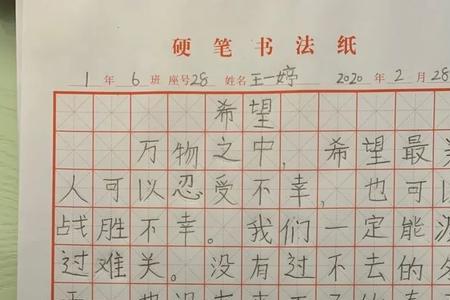 硬笔书法纸
1年6班座号28 姓名王一婷 2020年2月28
希望
万物之中，希望最
人可以忍受不幸，也可以
战胜不幸。我们一定能
过难关。没有过不去的